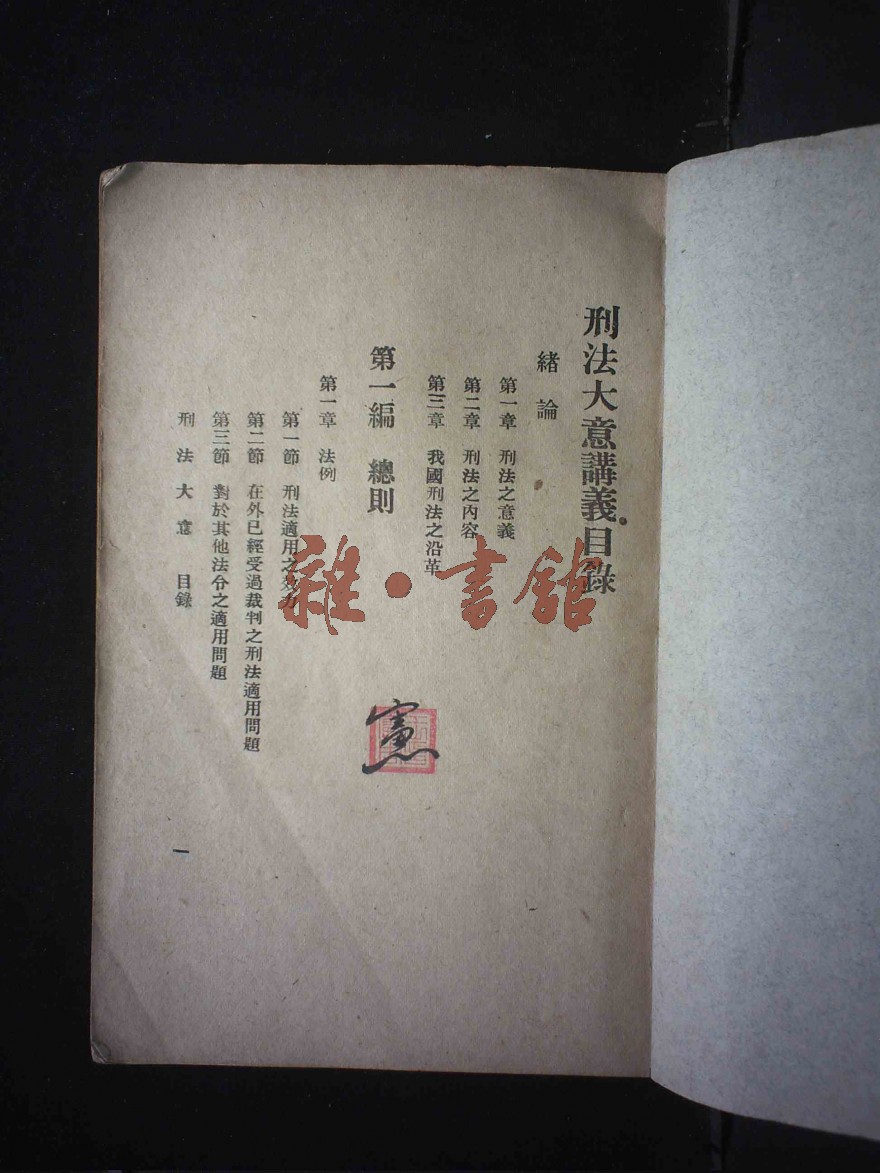 刑法大意講義目錄
緒論
第一章 刑法之意義
第二章 刑法之內容
第三章 我國刑法之沿革
第一編 總則
第一章 法例
第一節 刑法適用之效力
第二節 在外已經受過裁判之刑法適用問題
第三節 對於其他法令之適用問題
刑法大意 目錄
一
雜·書館
憲